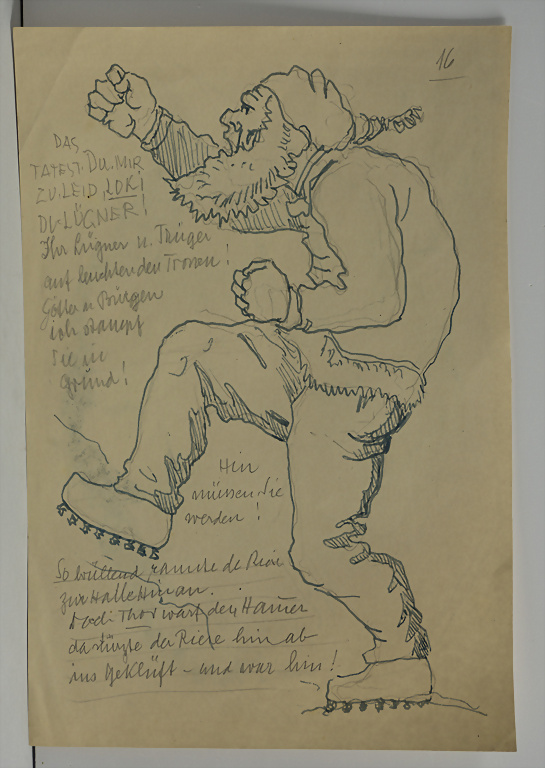 16
DAS
TATEST DU MIR
ZU LEID, LOKI
DU LÜGNER!
Ihr Lügner u. Trüger
auf leuchtenden Tronen!
Götter u.
ich stampf
Sie in
Grund!
Hin
müssen Sie
werden!
So wütend, rannte de Riese
zur Halle hinan.
Doch Thor warf den Hamer
da stürzte der Riese hin ab
ins Geklüft – und war hin!